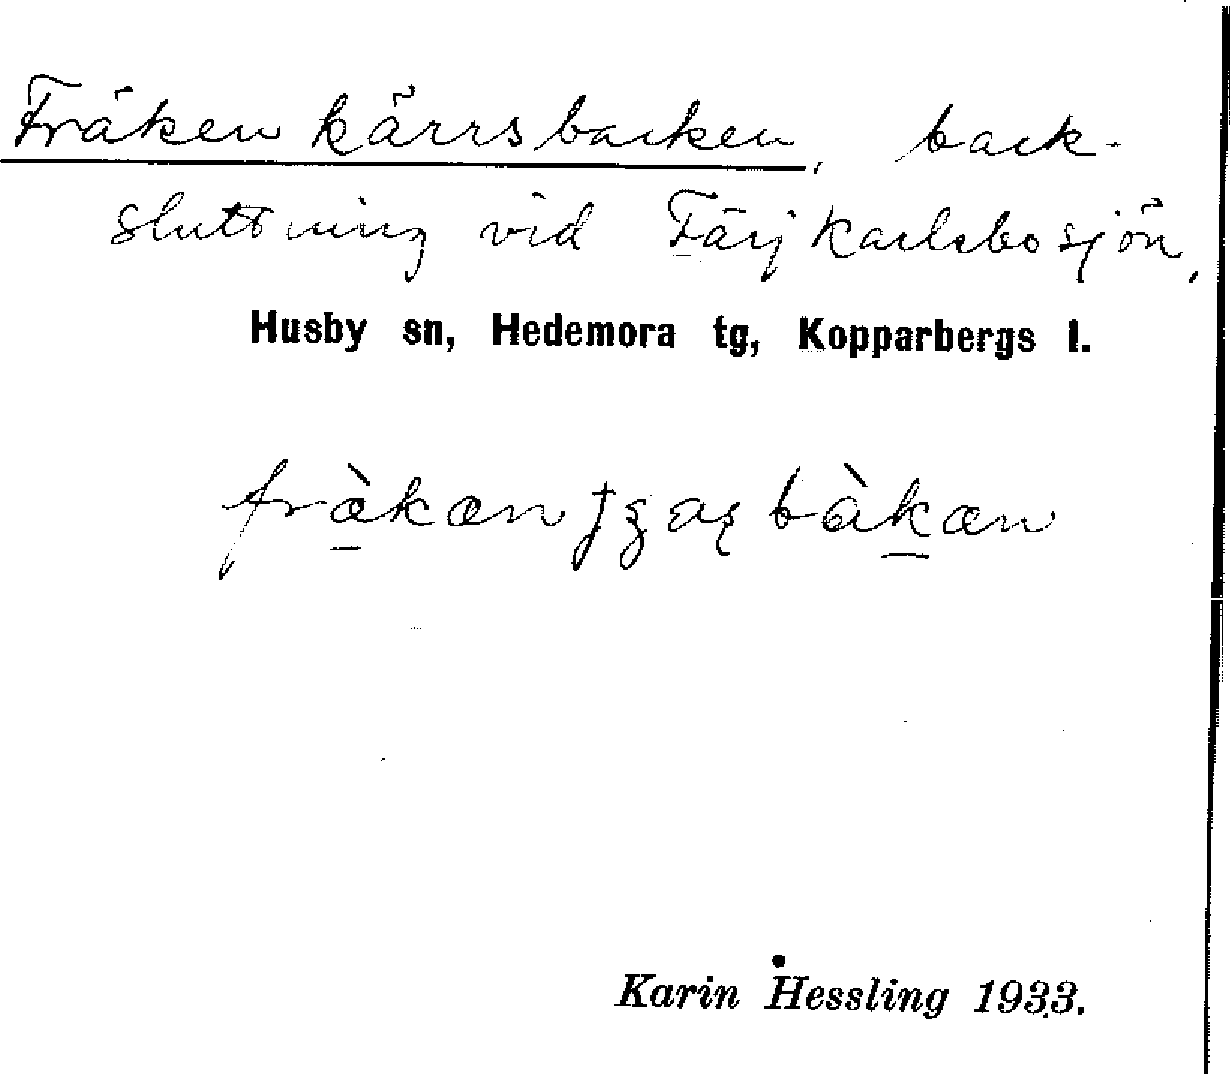 Fräkenkärrsbacken, back-
sluttning vid Färjkarlsbosjön,
Husby sn, Hedemora tg, Kopparbergs l.
Karin Hessling 1933.